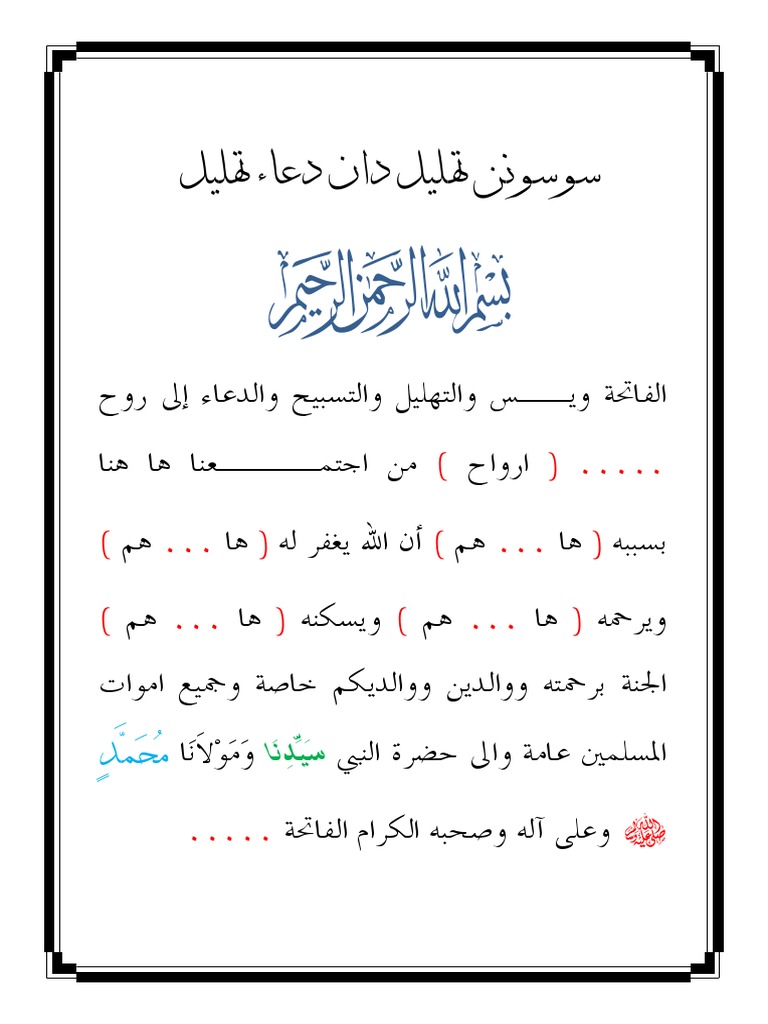 سوسونن تهليل دان دعاء تهليل
بِسْمِ اللَّهِ الرَّحْمَٰنِ الرَّحِيمِ
الفاتحة ويـــــس والتهليل والتسبيح والدعاء إلى روح
..... ( ارواح ) من اجتمـــــــــــعنا ها هنا
بسببه ( ها ... هم ) أن الله يغفر له ( ها ... هم )
ويرحمه ( ها ... هم ) ويسكنه ( ها ... هم )
الجنة برحمته ووالدين ووالديكم خاصة وجميع اموات
المسلمين عامة والى حضرة النبي سَيِّدِنَا وَمَوْلَانَا مُحَمَّدٍ
ﷺ وعلى آله وصحبه الكرام الفاتحة .....